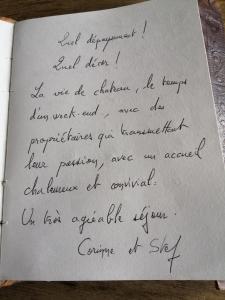 Quel dépaysement !
Quel décor !
La vie de chateau, le temps
d'un week-end, avec des
propriétaires qui transmettent
leur passion, avec un accueil
chaleureux et convivial.
Un très agréable séjour.
Corinne et Stef